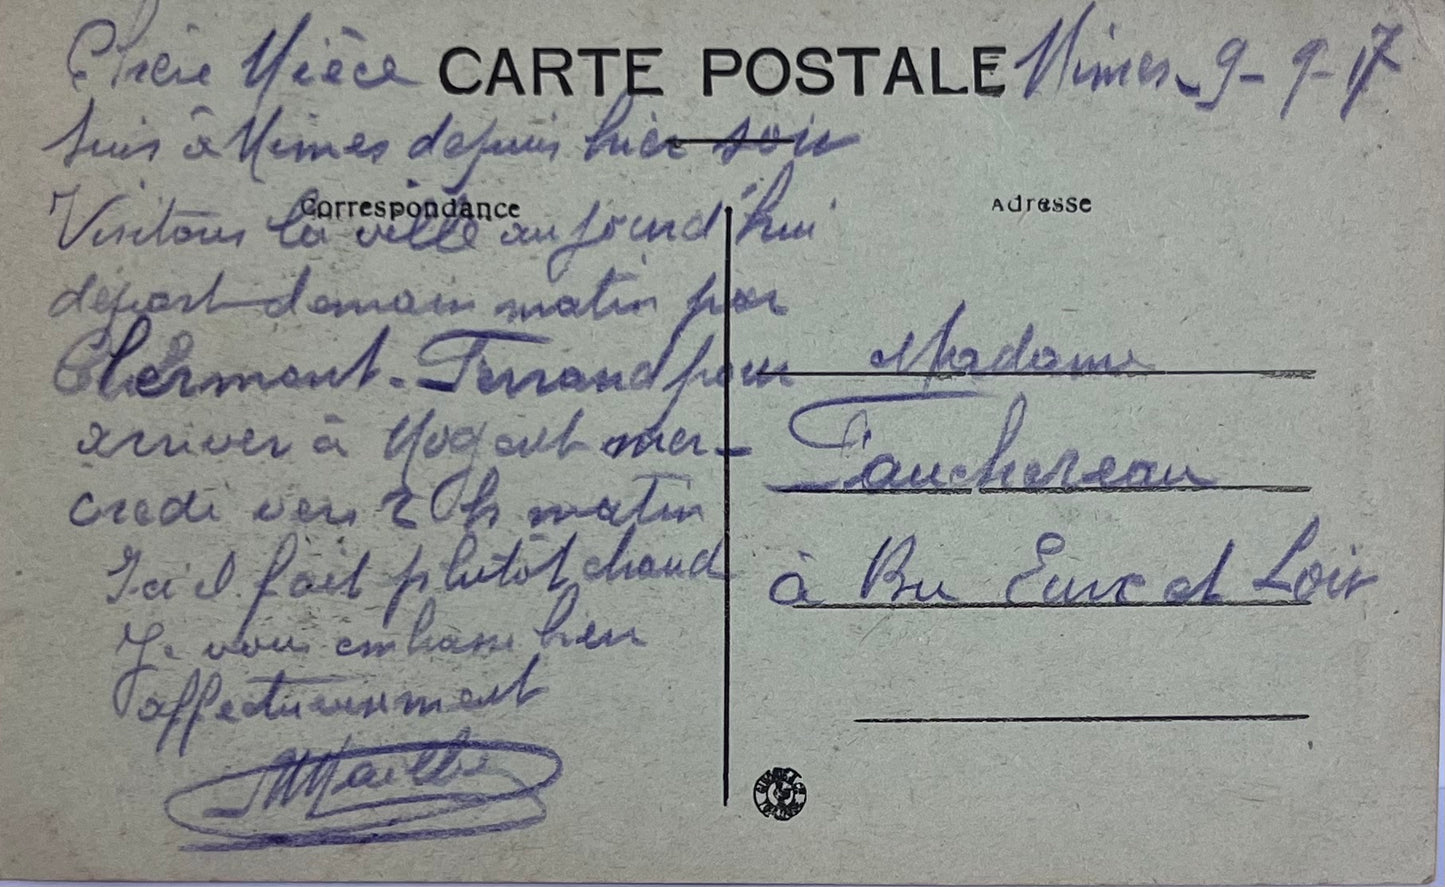 CARTE POSTALE
Nimes 9-9-17
Chère Nièce
Suis à Nimes depuis hier soir
Correspondance
Visitons la ville aujourd'hui
départ demain matin par
Clermont-Ferrand pour
arriver à Nogent mer-
credi vers 2 h matin
Ici il fait plutôt chaud
Je vous embrasse bien
affectueusement
Adresse
Madame
Fauchereau
à Bu Eure et Loir